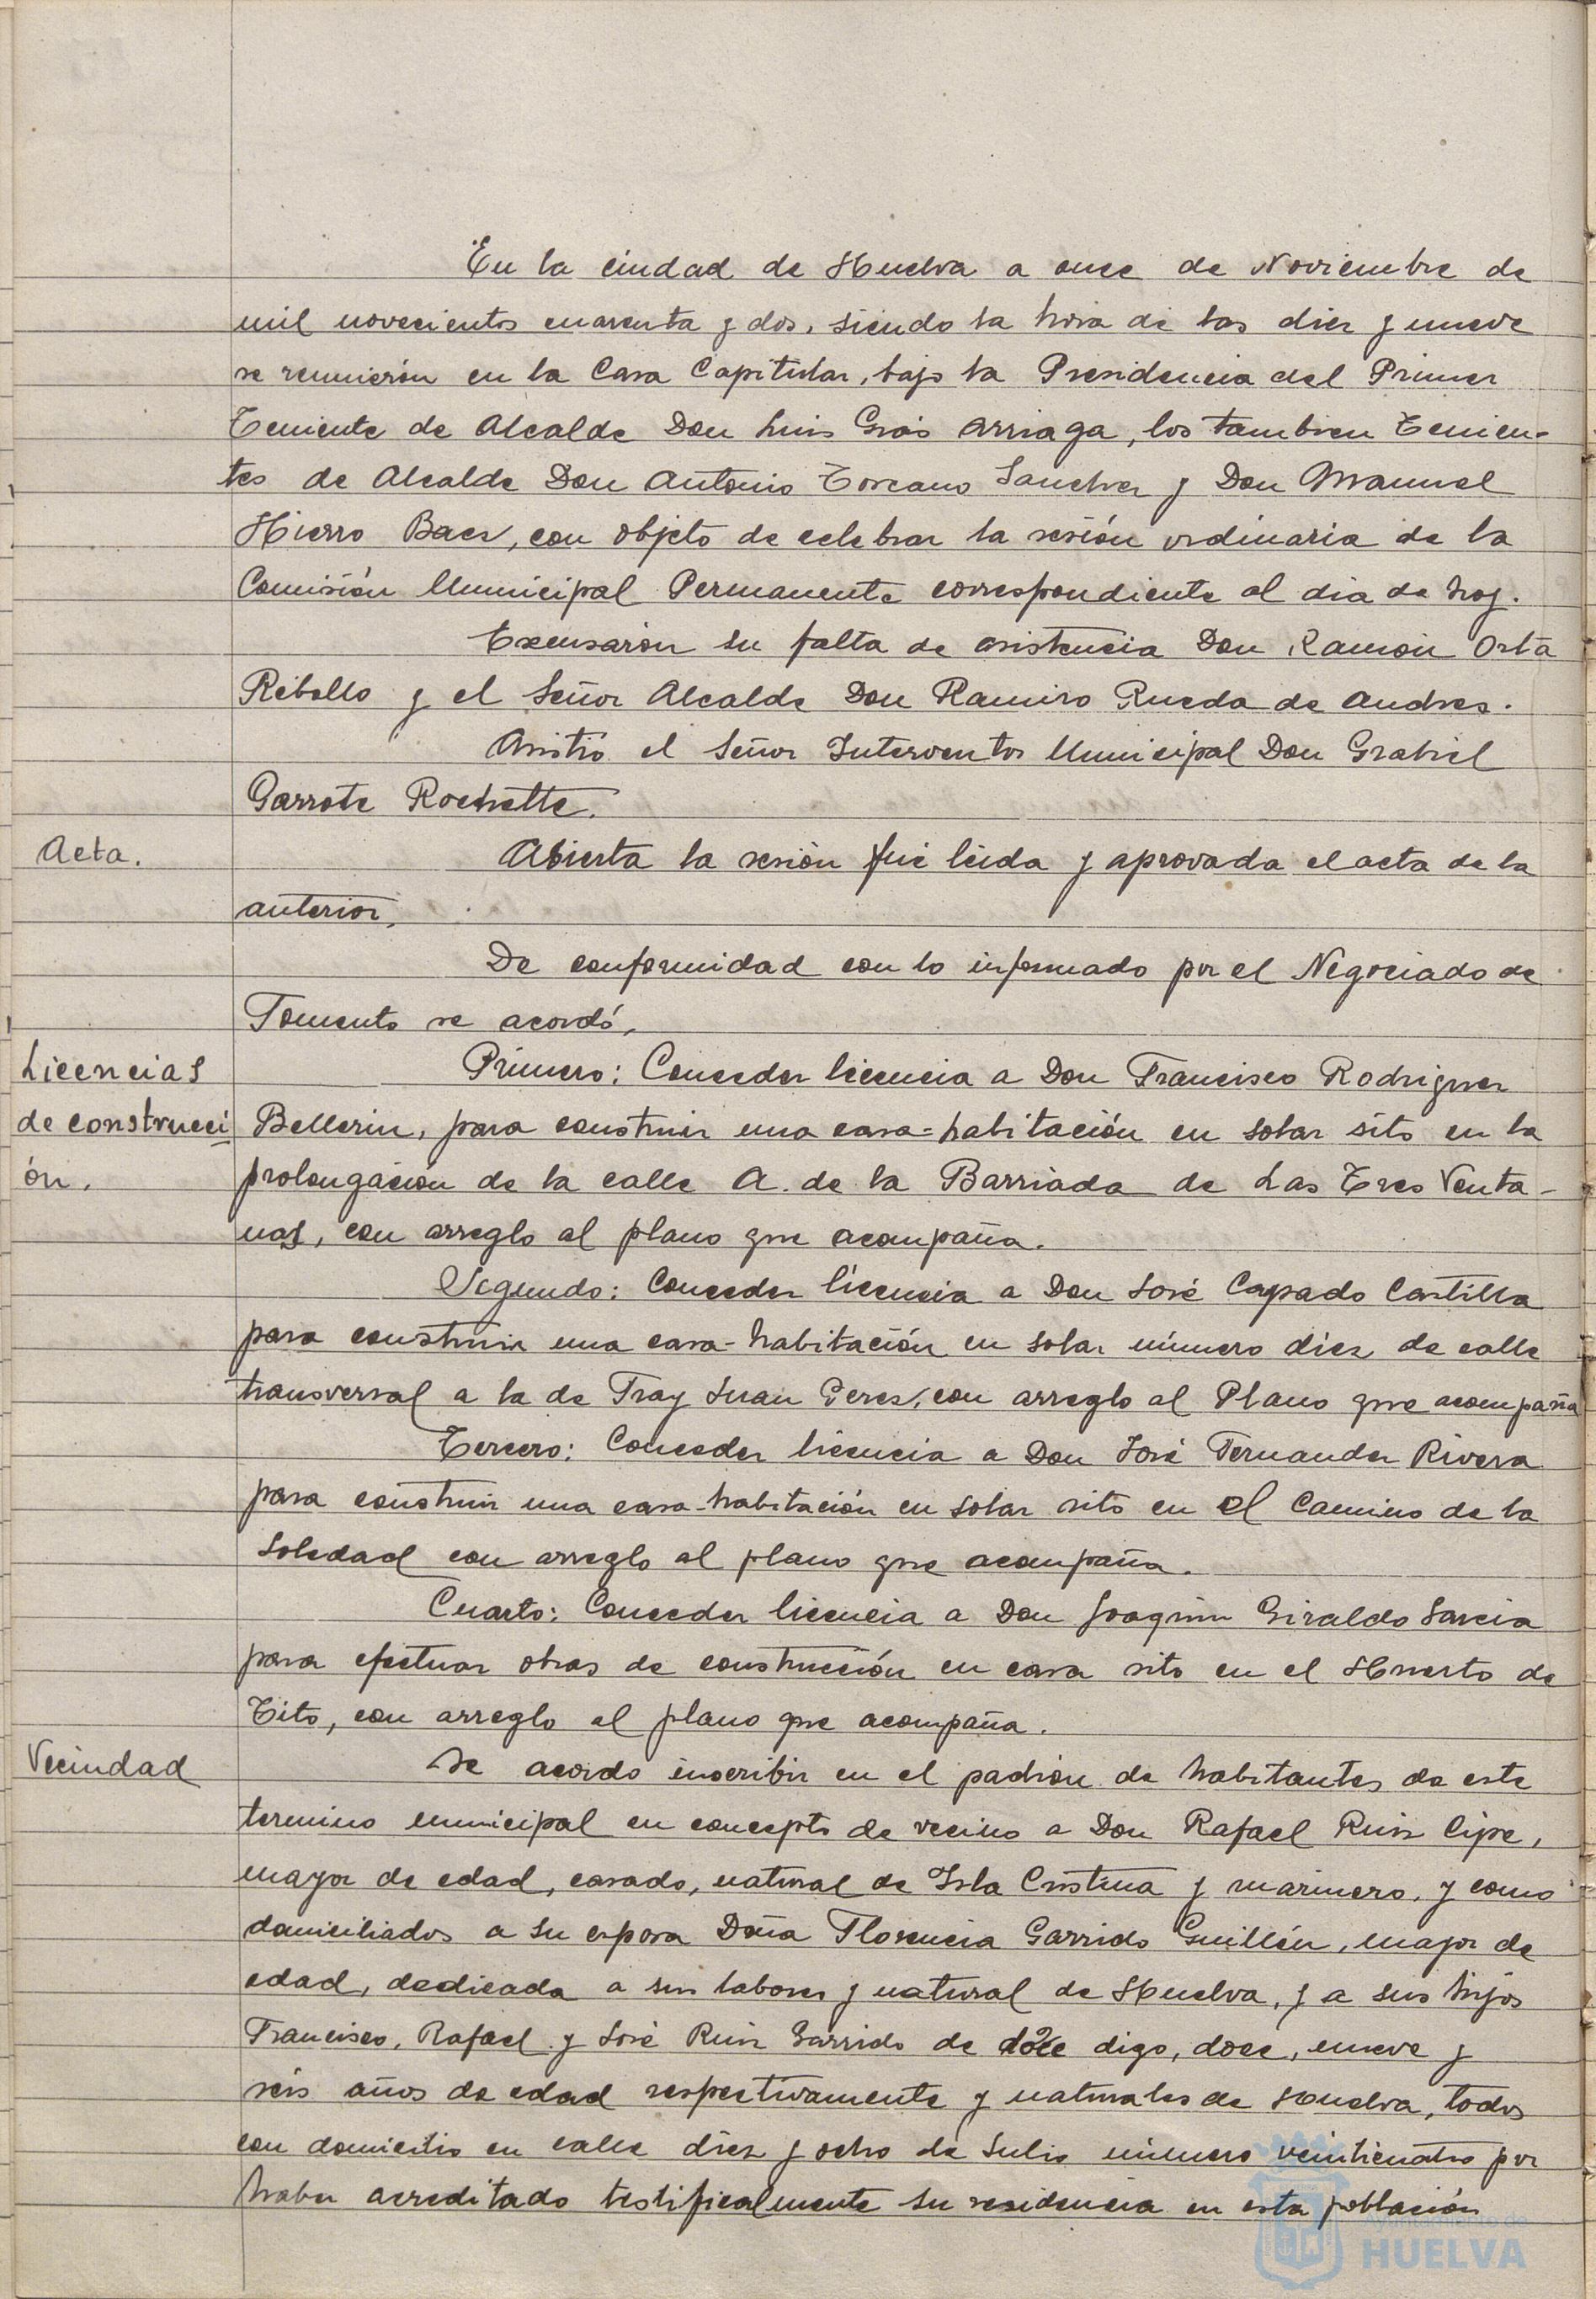 En la ciudad de Huelva a once de Noviembre de
mil novecientos cuarenta y dos, siendo la hora de las diez y nueve
se reunieron en la Casa Capitular, bajo la Presidencia del Primer
Teniente de Alcalde Don Luis Gras Arriaga, los tambien Tenien-
tes de Alcalde Don Antonio Toscano Sanchez y Don Manuel
Hierro Baez, con objeto de celebrar la sesión ordinaria de la
Comisión Municipal Permanente correspondiente al dia de hoy.
Excusaron su falta de asistencia Don Ramón Orta
Rebollo y el Señor Alcalde Don Ramiro Rueda de Andres.
Asistió el Señor Interventor Municipal Don Grabiel
Garrote Rochette.
Acta.
Abierta la sesión fué leida y aprovada el acta de la
anterior.
De conformidad con lo informado por el Negociado de
Fomento se acordó,
Licencias
de construcci
ón.
Primero: Conceder licencia a Don Francisco Rodriguez
Bellerin, para construir una casa-habitación en solar sito en la
prolongación de la calle A. de la Barriada de Las Tres Venta-
nas, con arreglo al plano que acompaña.
Segundo: Conceder licencia a Don José Capado Castilla
para construir una casa-habitación en solar número diez de calle
transversal a la de Fray Juan Perez, con arreglo al Plano que acompaña
Tercero: Conceder licencia a Don José Fernandez Rivera
para construir una casa-habitación en solar sito en el Camino de la
Soledad con arreglo al plano que acompaña.
Cuarto: Conceder licencia a Don Joaquin Giraldo Garcia
para efectuar obras de construcción en casa sito en el Huerto de
Tito, con arreglo al plano que acompaña.
Vecindad
Se acordo inscribir en el padrón de habitantes de este
termino municipal en concepto de vecino a Don Rafael Ruiz Cipe,
mayor de edad, casado, natural de Isla Cristina y marinero, y como
domiciliados a su esposa Doña Florencia Garrido Guillén, mayor de
edad, dedicada a sus labores y natural de Huelva, y a sus hijos
Francisco, Rafael y José Ruiz Garrido de doce digo, doce, nueve y
seis años de edad respectivamente y naturales de Huelva, todos
con domicilio en calle diez y ocho de Julio número veinticuatro por
haber acreditado testificalmente su residencia en esta población
Ayuntamiento de
HUELVA